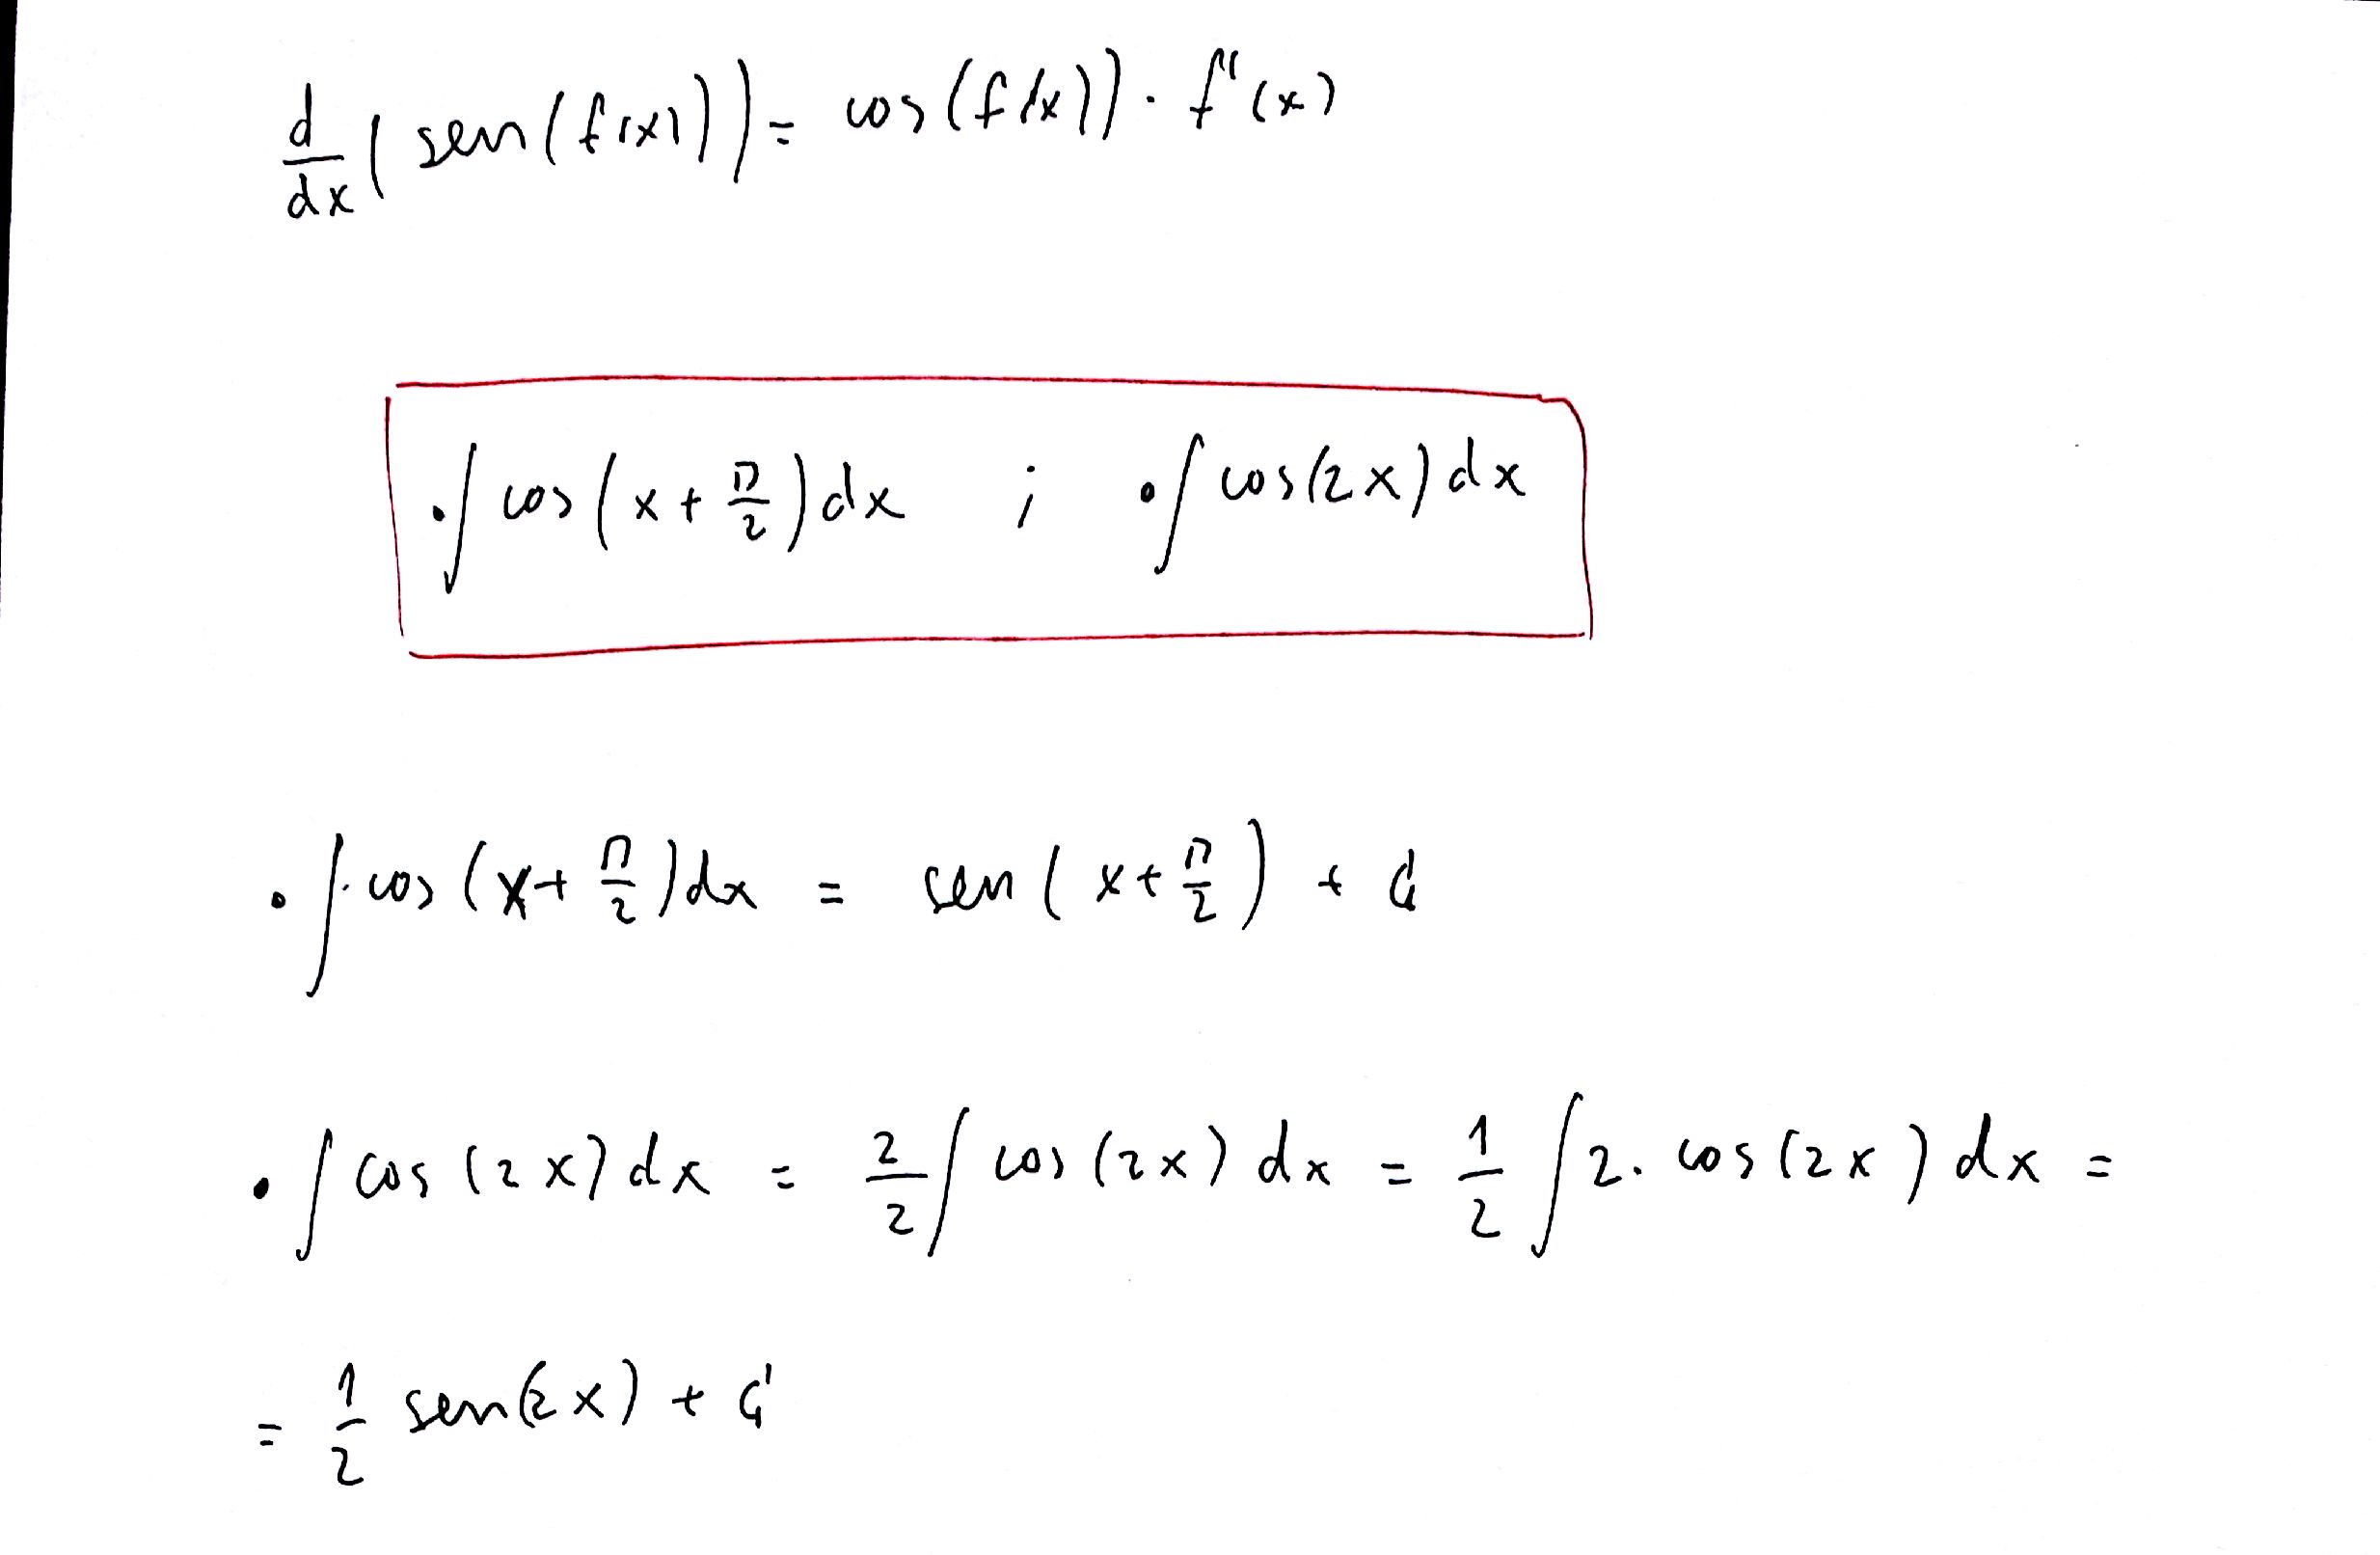 d/dx (sen(f(x))) = cos(f(x)) · f'(x)
• ∫ cos(x + π/2) dx ; • ∫ cos(2x) dx
• ∫ cos(x + π/2) dx = sen(x + π/2) + C
• ∫ cos(2x) dx = 2/2 ∫ cos(2x) dx = 1/2 ∫ 2 · cos(2x) dx =
= 1/2 sen(2x) + C